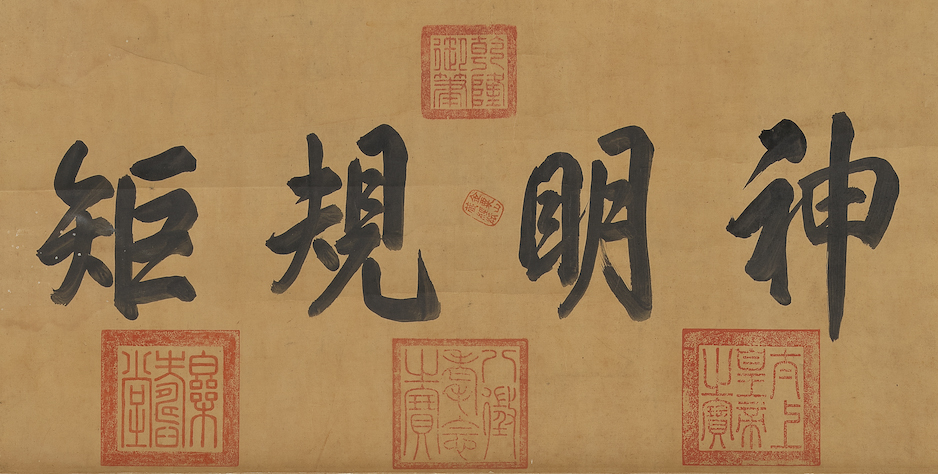 乾隆御筆
神明規矩
太上皇帝之寶
八徵耄念之寶